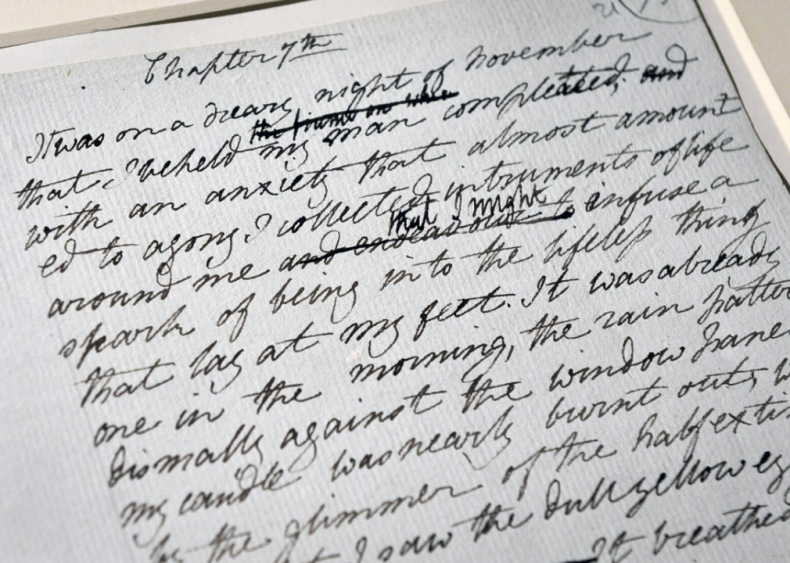 Chapter 7th
It was on a dreary night of November
the frame on whic
that I beheld my man compleated; and
with an anxiety that almost amount
ed to agony I collected instruments of life
that I might
around me and endeavour to infuse a
spark of being into the lifeless thing
that lay at my feet. It was already
one in the morning, the rain patter
dismally against the window panes
my candle was nearly burnt out, w
by the glimmer of the half exti
I saw the dull yellow ey
It breathed